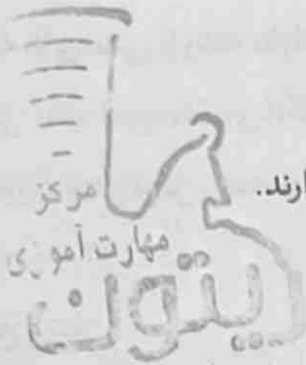 ارند.
مرکز
مهارت آموزی
زیتون